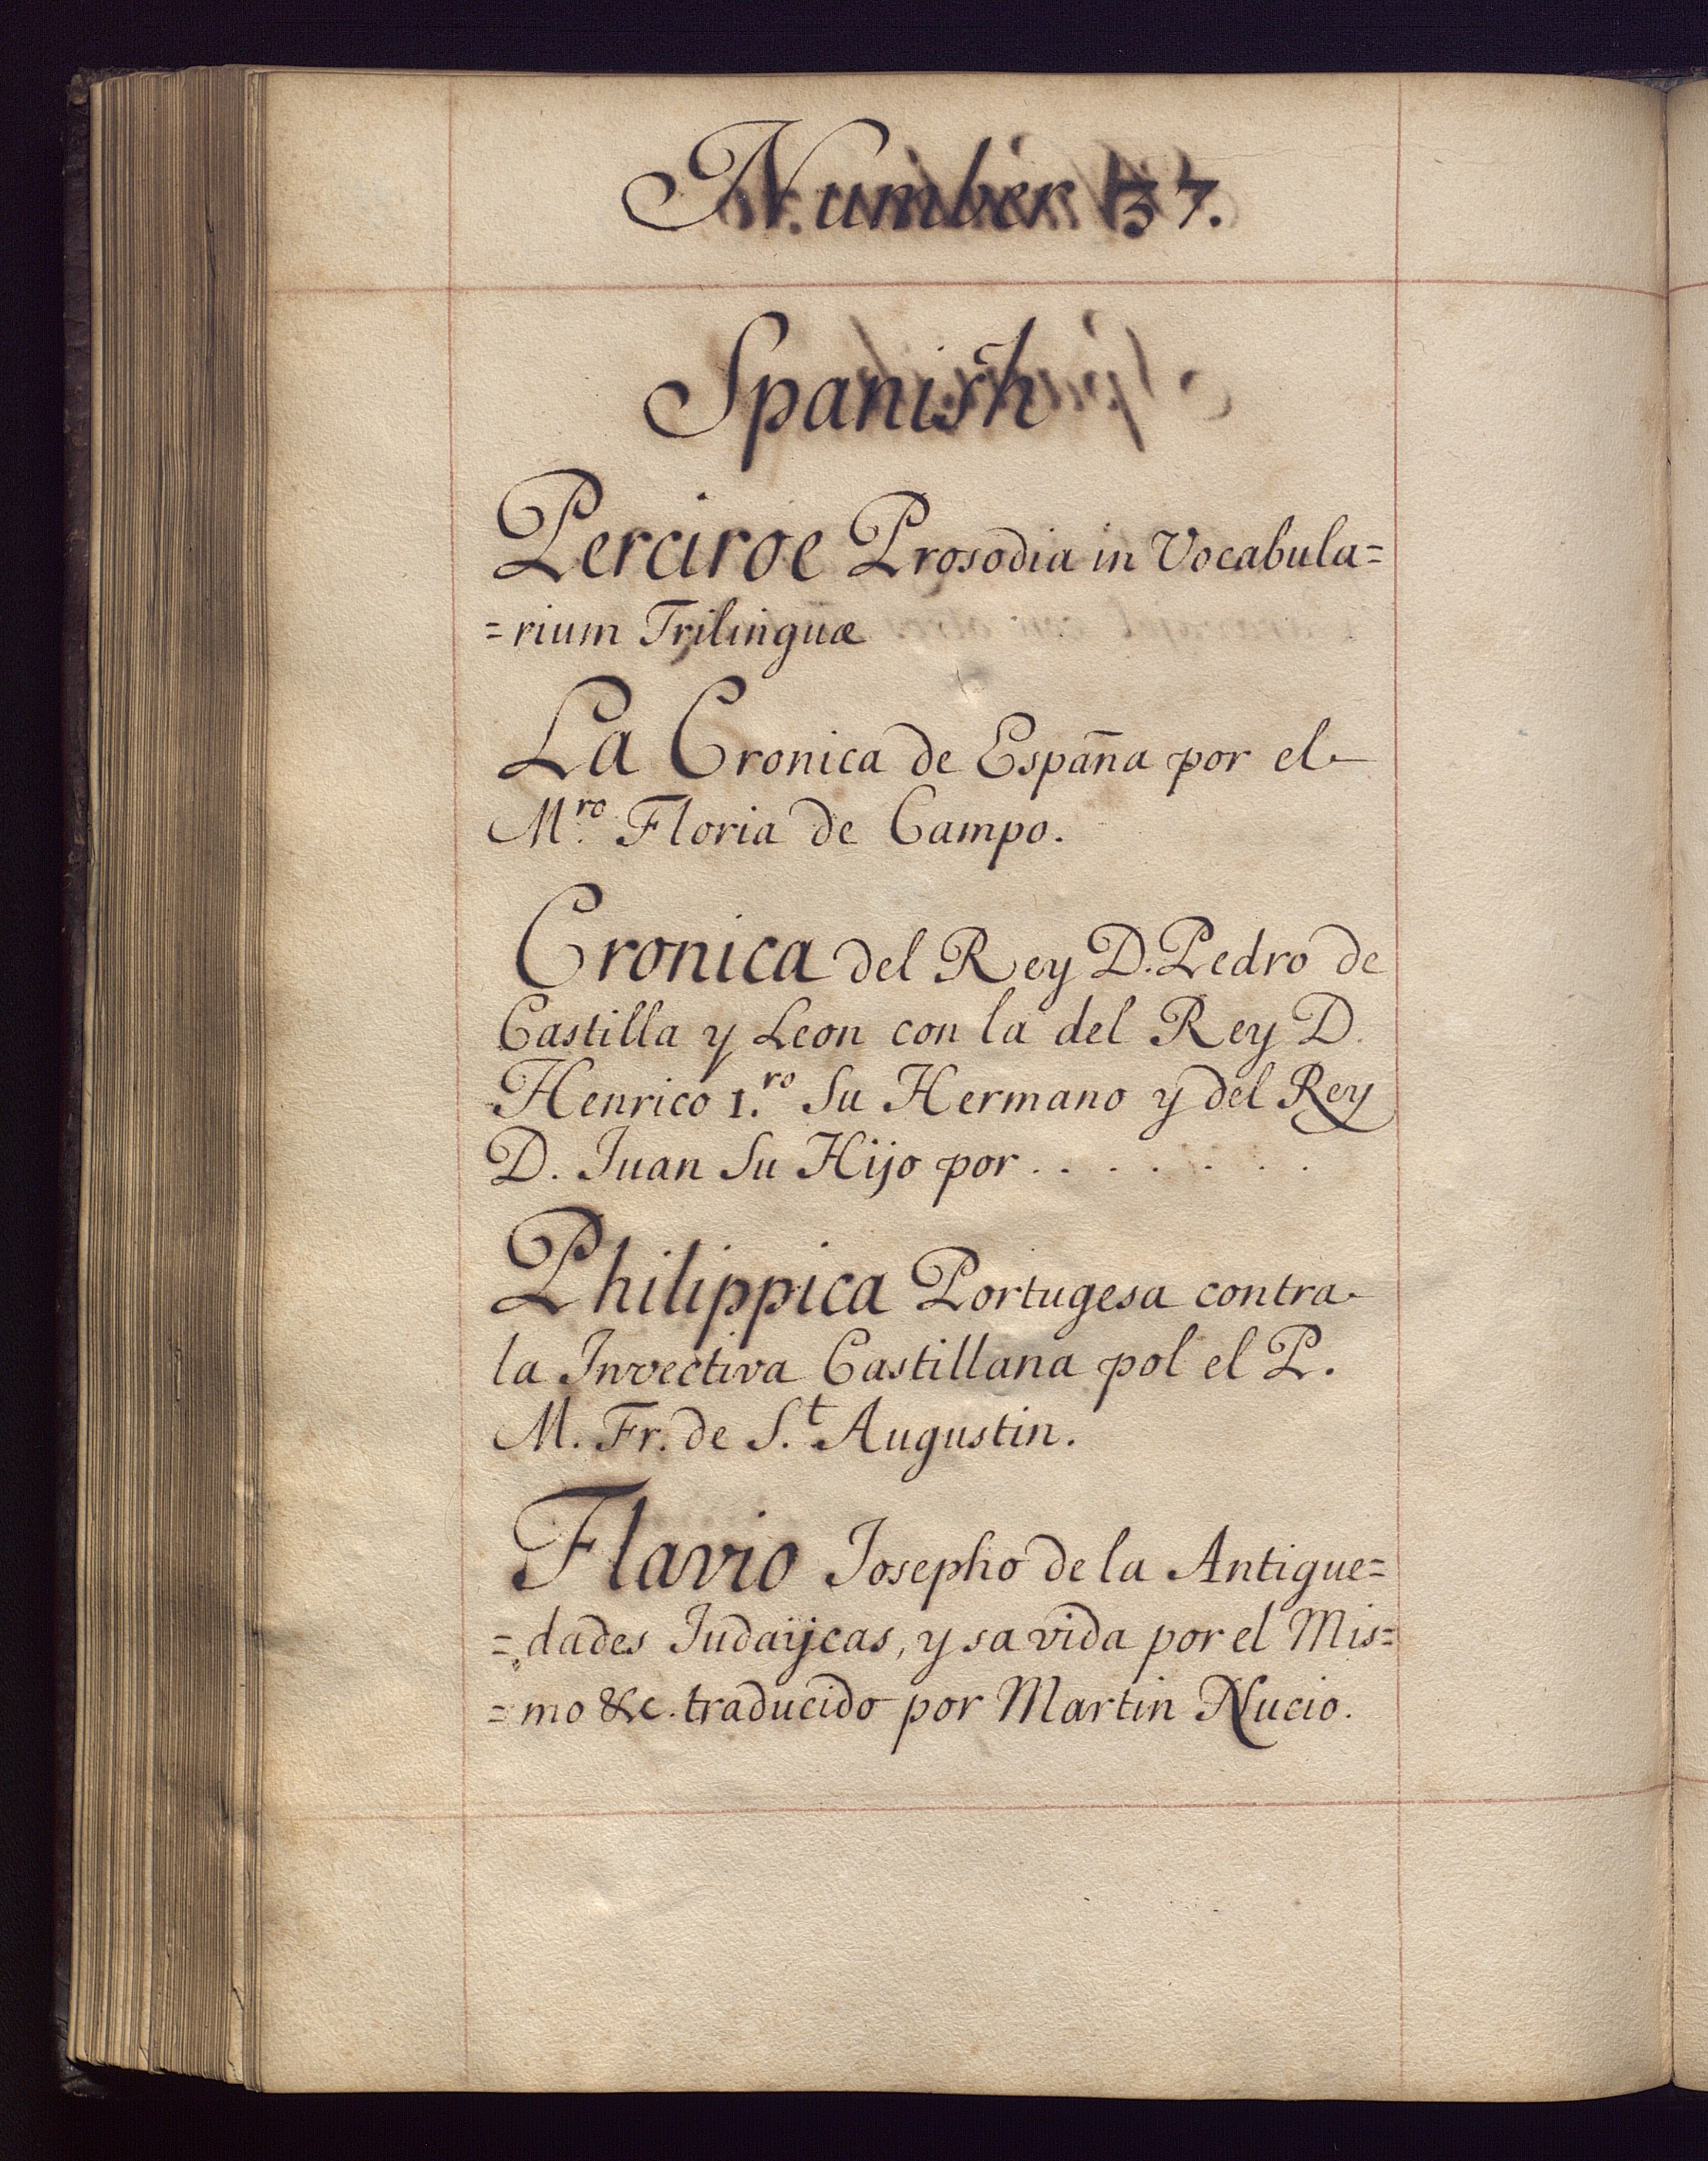 Number 37.
Spanish
Perciroe Prosodia in Vocabula=
=rium Trilinguæ
La Cronica de España por el
M.ro Floria de Campo.
Cronica del Rey D. Pedro de
Castilla y Leon con la del Rey D.
Henrico 1.ro Su Hermano y del Rey
D. Juan Su Hijo por . . . . . . .
Philippica Portugesa contra
la Invectiva Castillana pol el P.
M. Fr. de S.t Augustin.
Flavio Josepho de la Antigue=
=dades Judaijcas, y sa vida por el Mis=
=mo &c. traducido por Martin Nucio.